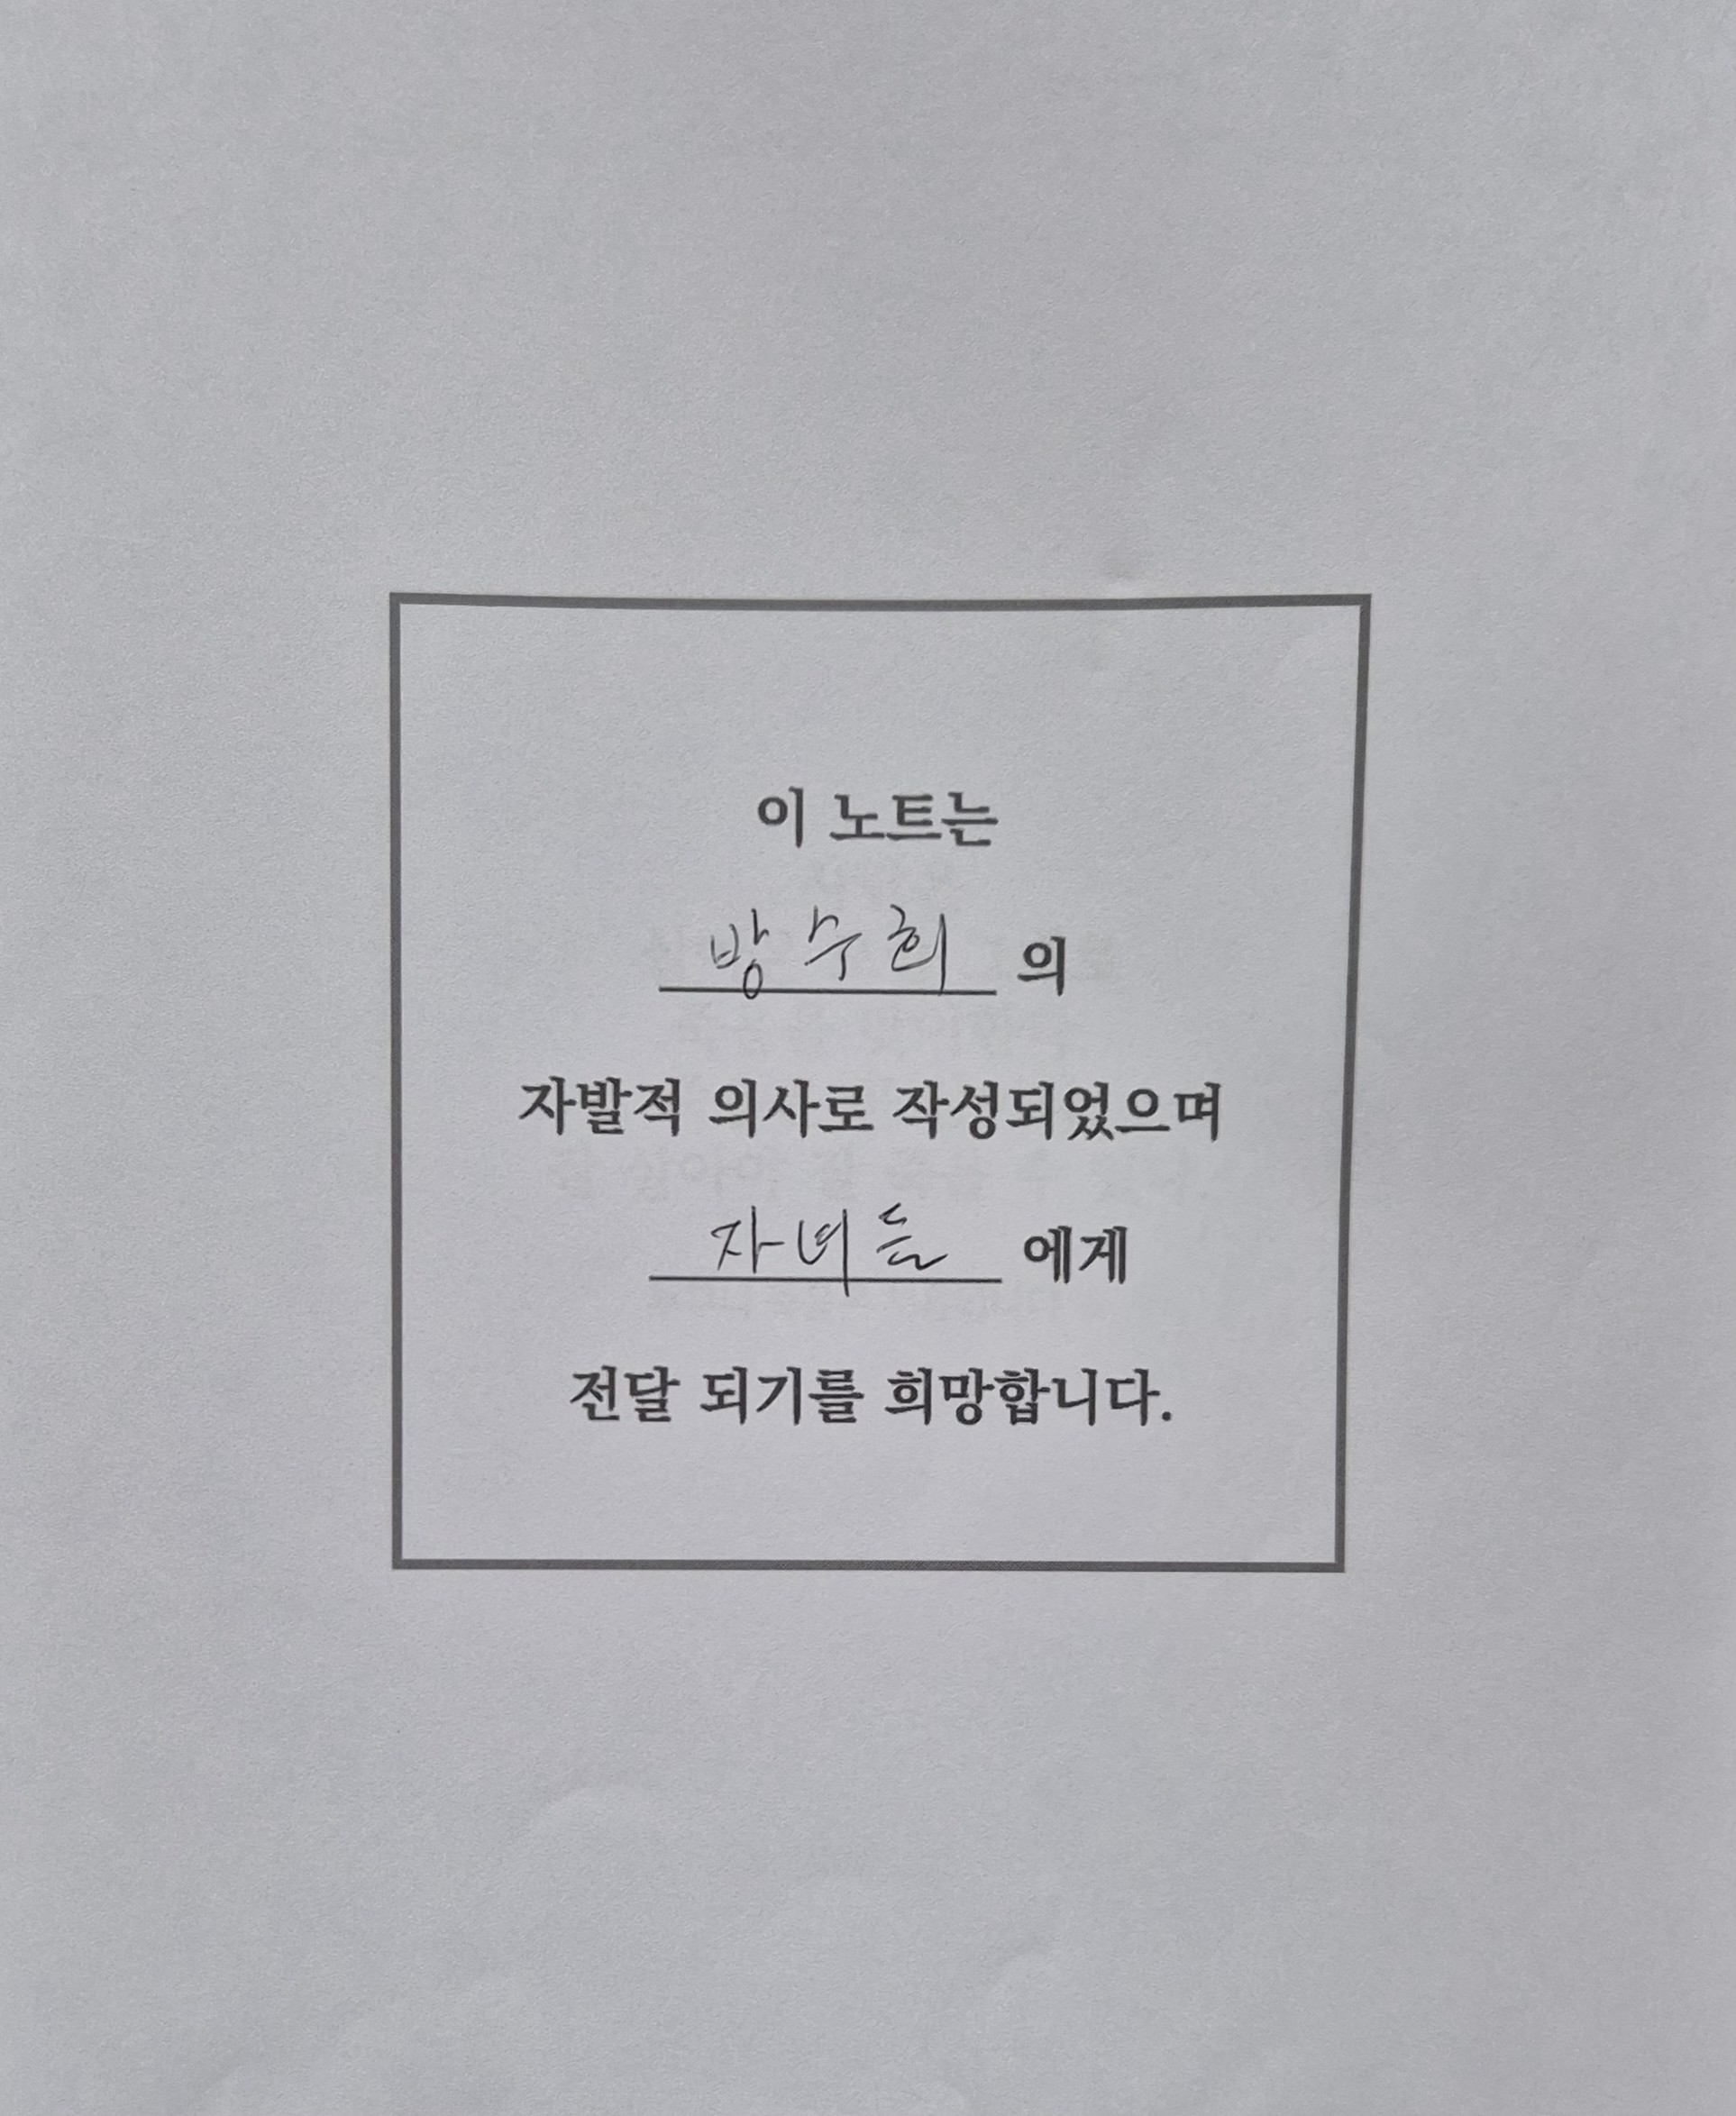 이 노트는
방수희 의
자발적 의사로 작성되었으며
자녀들 에게
전달 되기를 희망합니다.